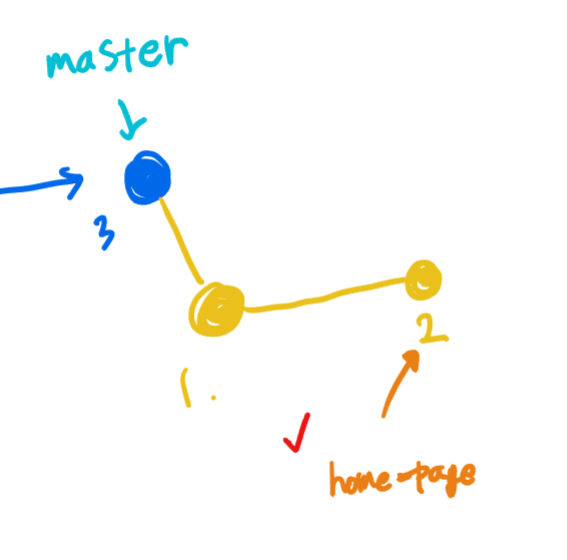 master
3
1.
2
home-page